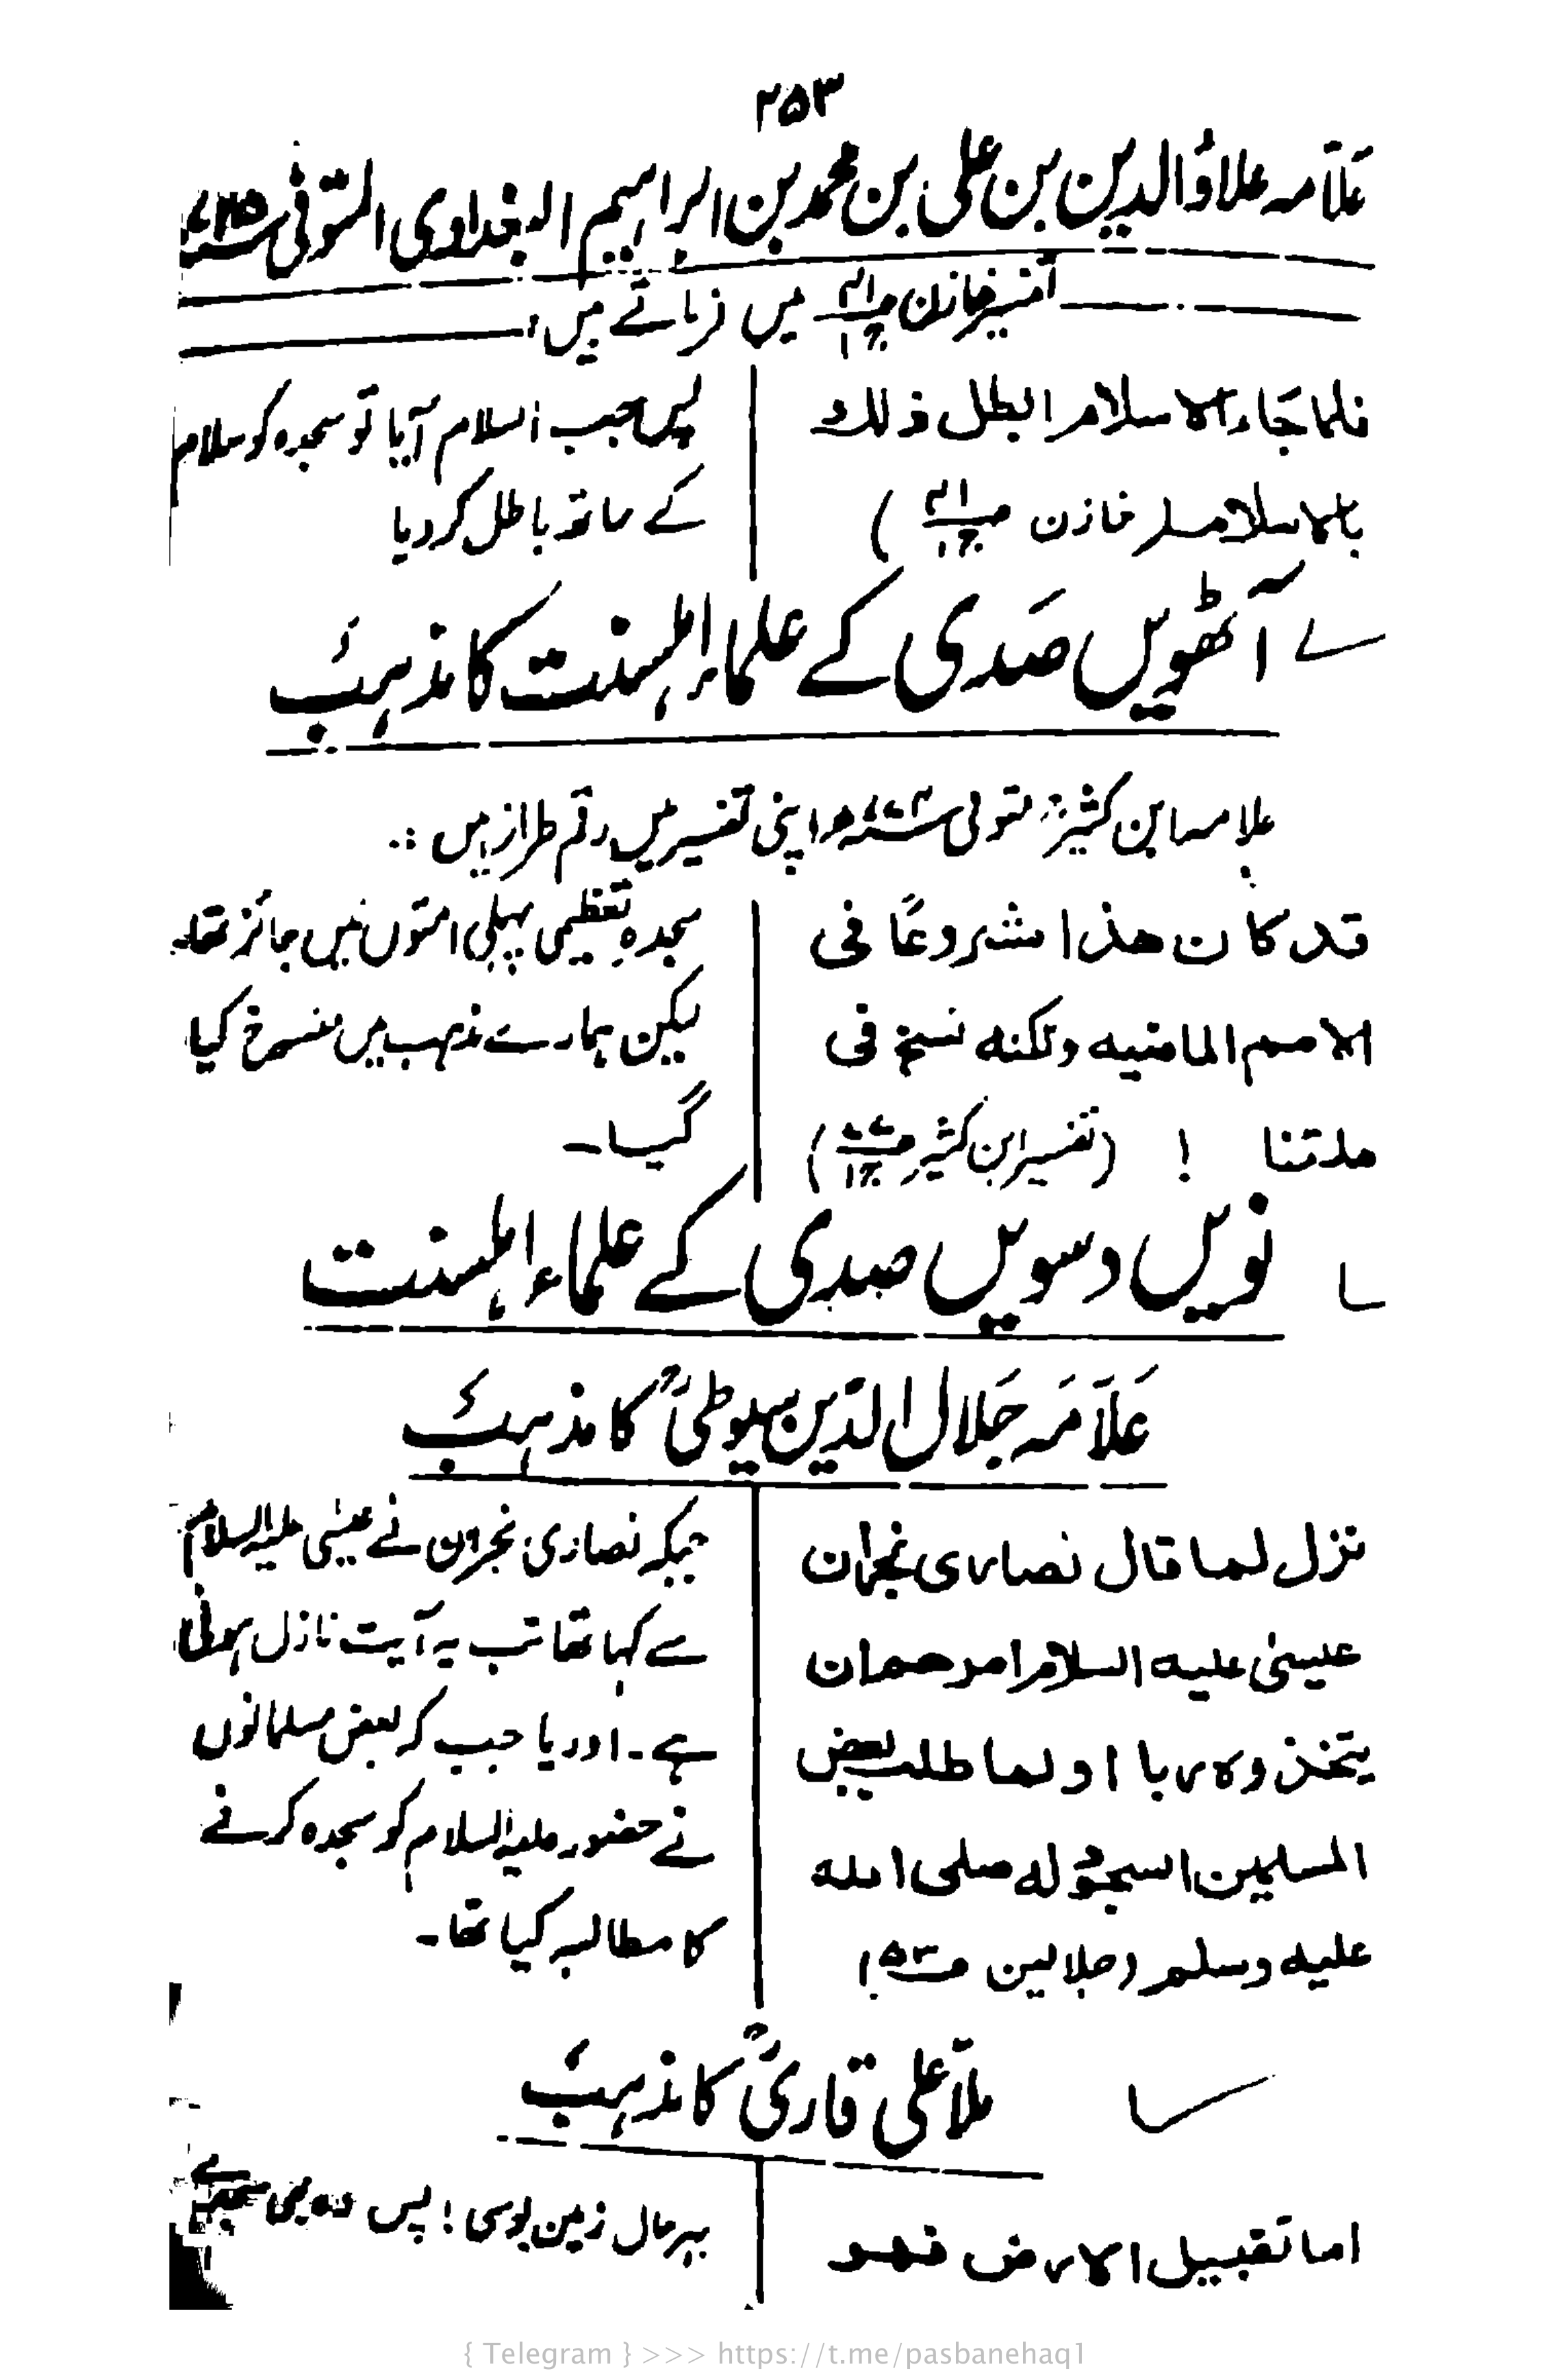 ۲۵۳
علّامہ علاؤالدین بن علی بن محمد بن ابراہیم البغدادی المتوفی ۷۲۵ھ
تفسیر خازن ج۱ میں فرماتے ہیں:
فلما جَاء الاسلام ابطل ذلك
بالاسلام خازن ج۱ )
پس جب اسلام آیا تو سجدہ کو سلام
کے ساتھ باطل کر دیا
آٹھویں صَدی کے علماء اہلسنت کا مذہب
علامہ ابن کثیرؒ متوفی ۷۷۴ھ اپنی تفسیر میں رقم طراز ہیں :
قد كان هذا مشروعًا فی
الامم الماضيه ولكنه نسخ فی
ملتنا ! (تفسیر ابن کثیر ج۱)
سجدہِ تعظیمی پہلی امتوں میں جائز تھا۔
لیکن ہمارے مذہب میں منسوخ کیا
گیا۔
نویں دسویں صدی کے علماء اہلسنت
عَلّامَہ جَلال الدّین سیوطیؒ کا مذہب
نزل لما قال نصاری نجران
عیسیٰ علیه السلام امرهم ان
یتخذوه ربا او لما طلب بعض
المسلمین السجود له صلی الله
علیه وسلم (جلالین ص۵۳)
جبکہ نصاریٰ نجران نے عیسیٰ علیہ السلام
سے کہا تھا تب یہ آیت نازل ہوئی
ہے۔ اور یا جب کہ بعض مسلمانوں
نے حضور علیہ السلام کو سجدہ کرنے
کا مطالبہ کیا تھا۔
ملّا علی قاریؒ کا مذہب
اما تقبیل الارض فهو
بہرحال زمین بوسی! پس وہ بھی سجدے
{ Telegram } >>> https://t.me/pasbanehaq1